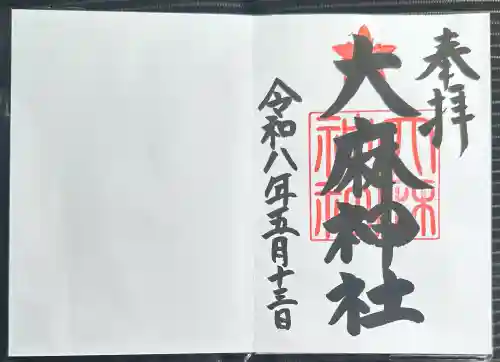 奉拝
大麻神社
令和八年五月十三日